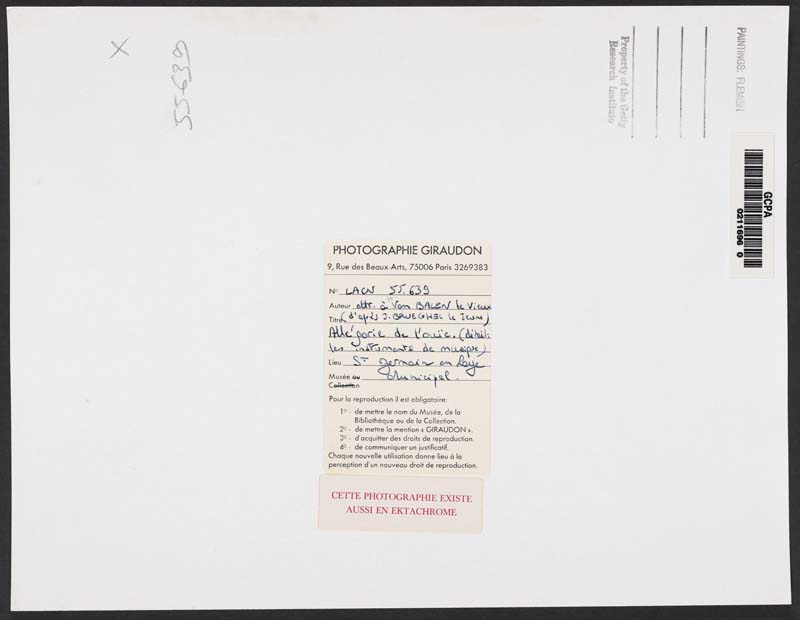 X
55639
Property of the Getty
Research Institute
PAINTINGS: FLEMISH
GCPA
0211696 0
PHOTOGRAPHIE GIRAUDON
9, Rue des Beaux-Arts, 75006 Paris 3269383
No LACN 55.639
Auteur attr. à Van BALEN le Vieux
Titre (d'après J. BRUEGHEL le Jeune)
Allégorie de l'ouïe. (détail:
les instruments de musique)
Lieu St germain en Laye
Musée ou Municipal.
Collection
Pour la reproduction il est obligatoire:
1o - de mettre le nom du Musée, de la
Bibliothèque ou de la Collection.
2o - de mettre la mention « GIRAUDON ».
3o - d'acquitter des droits de reproduction.
4o - de communiquer un justificatif.
Chaque nouvelle utilisation donne lieu à la
perception d'un nouveau droit de reproduction.
CETTE PHOTOGRAPHIE EXISTE
AUSSI EN EKTACHROME